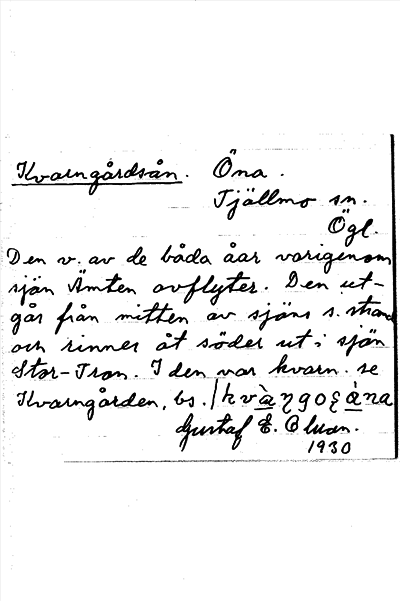 Kvarngårdsån. Öna.
Tjällmo sn.
Ögl.
Den v. av de båda åar varigenom
sjön Ämten avflyter. Den ut-
går från mitten av sjöns s. strand
och rinner åt söder ut i sjön
Stor-Tron. I den var kvarn. se
Kvarngården, bs. / kvàŋgoꜫàna
Gustaf E.
1930